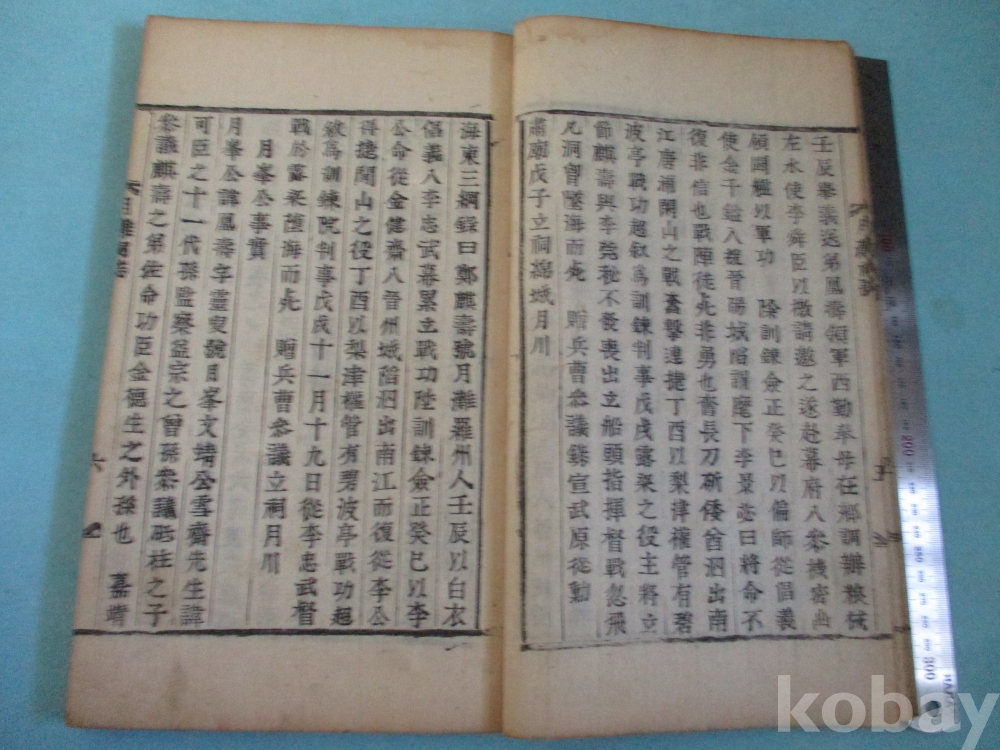 壬辰擧義送弟鳳壽領軍西勤奉母在鄕調辦粮械
左水使李舜臣以檄請邀之遂赴幕府入參機密幽
領同檻以軍功 陞訓鍊僉正癸巳以偏師從倡義
使金千鎰入援晉陽城陷謂麾下李景 曰將命不
復非信也戰陣徒死非勇也奮長刀斫倭酋泅出南
江唐浦閑山之戰奮擊連捷丁酉以梨津權管有碧
波亭戰功超叙爲訓鍊判事戊戌露梁之役主將立
節麒壽與李莞祕不發喪出立船頭指揮督戰忽飛
丸洞胷墜海而死 贈兵曹參議錄宣武原從勳
肅廟戊子立祠綿城月川
海東三綱錄曰鄭麒壽號月灘羅州人壬辰以白衣
倡義入李忠武幕累立戰功陞訓鍊僉正癸巳以李
公命從金健齋入晉州城陷泅出南江而復從李公
得捷閑山之役丁酉以梨津權管有碧波亭戰功超
敍爲訓鍊院判事戊戌十一月十九日從李忠武督
戰於露梁墮海而死 贈兵曹參議立祠月川
月峯公事實
月峯公諱鳳壽字靈叟號月峯文靖公雪齋先生諱
可臣之十一代孫監察益宗之曾孫參議砥柱之子
參議麒壽之弟佐命功臣金德生之外孫也 嘉靖
六